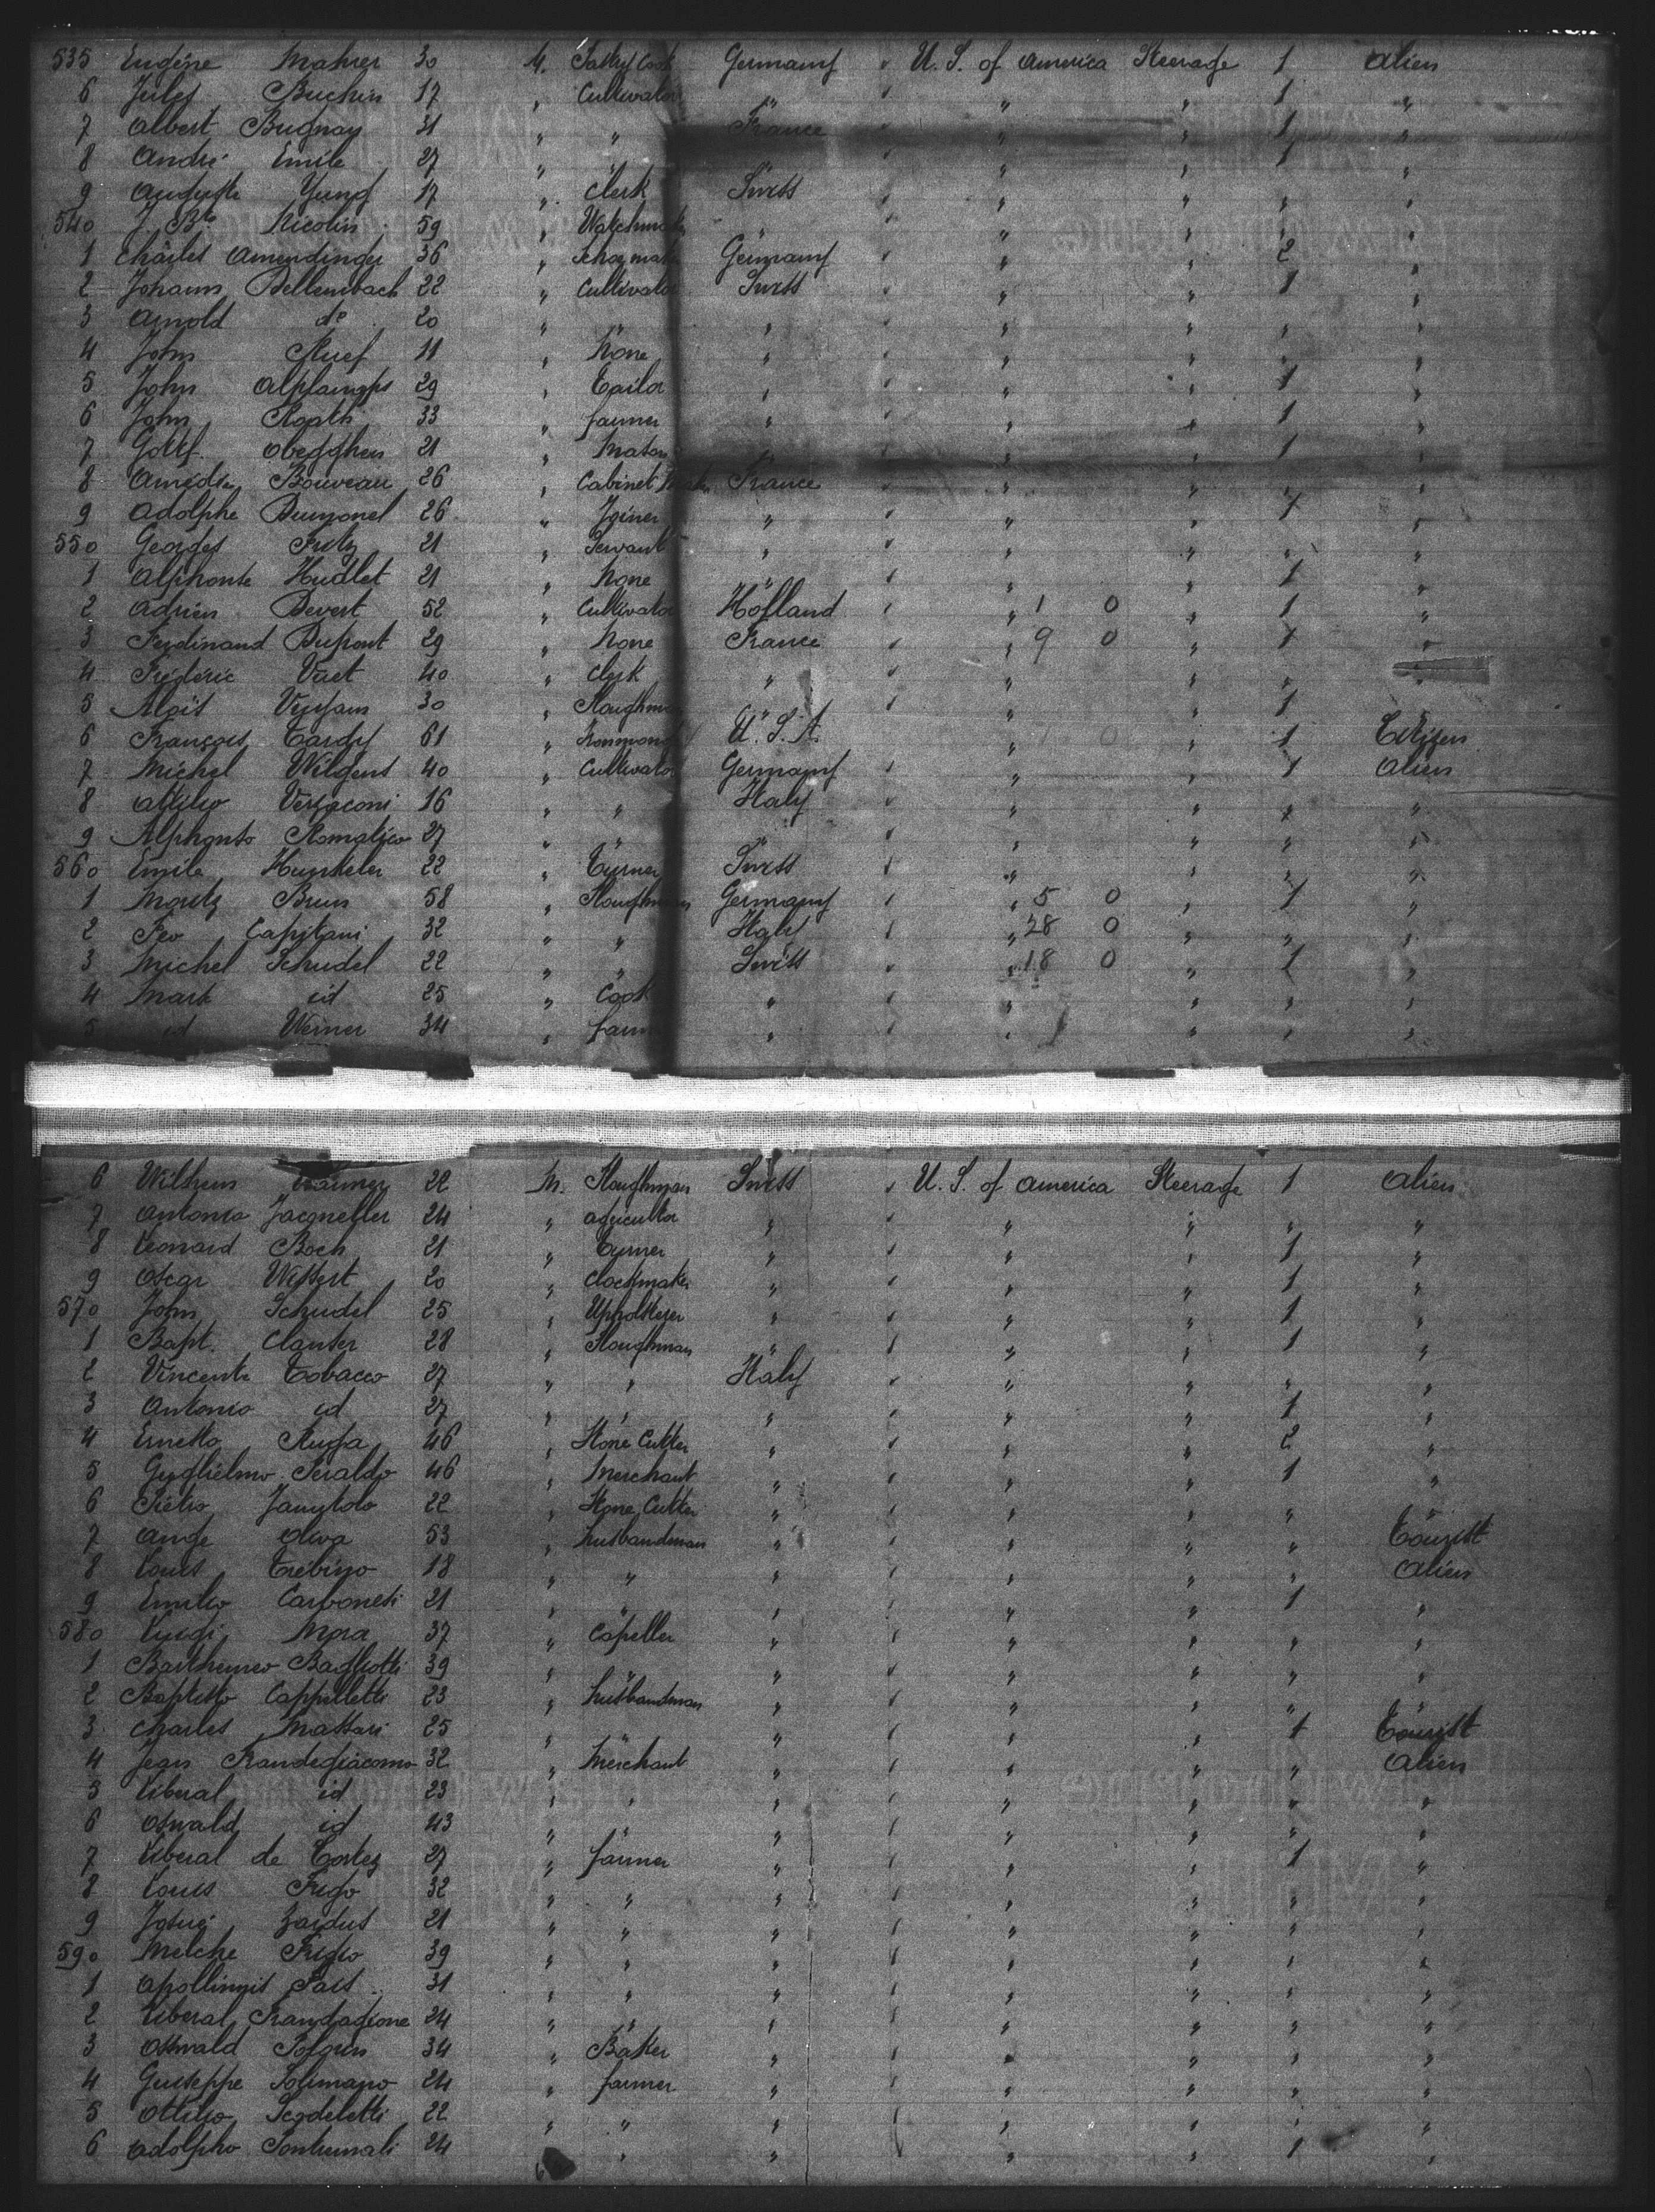 535 Eugène Mahrer 30 M. Pastry Cook Germany U. S. of America Steerage 1 Alien
6 Jules Buchin 17 " Cultivator " " " 1 "
7 Albert Bugnay 31 " " France " " 1 "
8 André Emile 27 " " " " " 1 "
9 Auguste 17 " Clerk Swiss " " " "
540 J. Bte Nicolin 59 " Watchmaker " " " " "
1 Charles Amendinger 36 " Germany " " 2 "
2 Johann Dellenbach 22 " Cultivator Swiss " " 1 "
3 Arnold do 20 " " " " " " "
4 John Ruef 11 " None " " " " "
5 John 29 " Tailor " " " 1 "
6 John 33 " farmer " " " 1 "
7 21 " Mason " " " 1 "
8 Amédée Bouveau 26 " Cabinet Maker France " " " "
9 Adolphe 26 " Joiner " " " 1 "
550 Georges Fritz 21 " Servant " " " " "
1 Alphonse Hudlet 21 " None " " " 1 "
2 Adrien Devert 52 " Cultivator Holland " 1 0 " 1 "
3 Ferdinand Dupont 29 " None France " 9 0 " 1 "
4 Frédéric Vuet 40 " Clerk " " " " "
5 Aloïs 30 " Ploughman " " " 1 "
6 François Tardy 61 " U. S. A. " " 1 Citizen
7 Michel Wilgens 40 " Cultivator Germany " " 1 Alien
8 Attilio 16 " " Italy " " " "
9 Alphonso 27 " " " " " " "
560 Emile Hunkeler 22 " Turner Swiss " " " "
1 Moritz Brun 58 " Ploughman Germany " 5 0 " 1 "
2 Feo Capitani 32 " " Italy " 28 0 " " "
3 Michel Schudel 22 " " Swiss " 18 0 " 1 "
4 Mark id 25 " Cook " " " " "
5 id Werner 34 " farmer " " " " "
6 Wilhem Wanner 22 M. Ploughman Swiss U. S. of America Steerage 1 Alien
7 Antonio 24 " agricultor " " " " "
8 Léonard Boch 21 " Turner " " " 1 "
9 Oscar 20 " Clockmaker " " " 1 "
570 John Schudel 25 " Upholsterer " " " 1 "
1 Bapt. Clauser 28 " Ploughman " " " 1 "
2 Vincente Tobacco 27 " " Italy " " " "
3 Antonio id 27 " " " " " 1 "
4 Ernesto Ruffa 46 " Stone Cutter " " " 2 "
5 Guglielmo Seraldo 46 " Merchant " " " 1 "
6 Pietro 22 " Stone Cutter " " " " "
7 Ange Oliva 53 " husbandman " " " " Tourist
8 Louis Trebino 18 " " " " " " Alien
9 Emilio Carboneti 21 " " " " " 1 "
580 Luigi Mora 37 " Capeller " " " " "
1 Barthemeo Bagliotti 39 " " " " " " "
2 Baptisto Cappelletti 23 " husbandman " " " " "
3 Charles Massari 25 " " " " " 1 Tourist
4 Jean Frandegiacomo 32 " Merchant " " " " Alien
5 Liberal id 23 " " " " " " "
6 Oswald id 43 " " " " " " "
7 Liberal de Cortez 27 " farmer " " " 1 "
8 Louis Frigo 32 " " " " " " "
9 Josué Zardus 21 " " " " " " "
590 Melche Frigo 39 " " " " " " "
1 31 " " " " " " "
2 Liberal 24 " " " " " " "
3 Osswald 34 " Baker " " " " "
4 Guiseppe Solimano 24 " farmer " " " " "
5 Ottilio 22 " " " " " " "
6 Adolpho 24 " " " " " 1 "